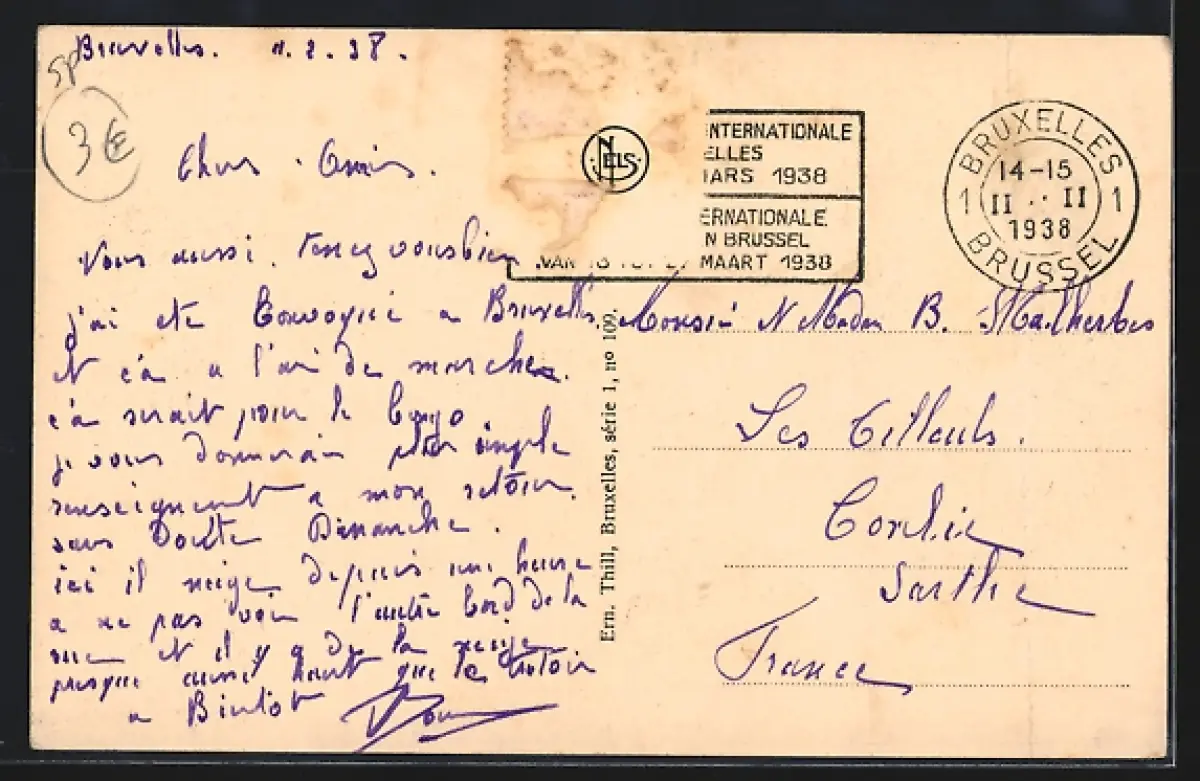 Bruxelles. 11.2.38.
SP
3€
Chers Amis.
Vous aussi. tenez vous bien
j'ai ete Convoqué a Bruxelles.
et ça a l'air de marcher.
ça serait pour le Congo.
je vous donnerai plus ample
renseignement a mon retour.
sans Doute Dimanche.
ici il neige depuis une heure
a ne pas voir l'autre bord de la
rue et il y a de la neige
presque aussi haut que le trottoir
a Bientôt
NELS
INTERNATIONALE
ELLES
MARS 1938
ERNATIONALE
N BRUSSEL
VAN MAART 1938
1 BRUXELLES 1
14-15
II II
1938
BRUSSEL
Ern. Thill, Bruxelles, série 1, nº 109.
Monsieu et Madam B. Malherbes
Les Tilleuls.
Conlie
Sarthe
France